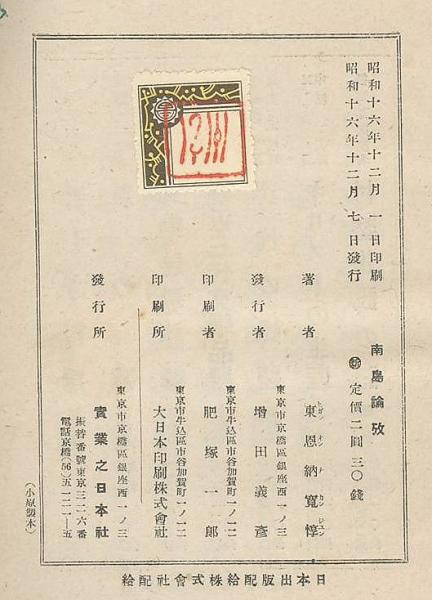 昭和十六年十二月一日印刷
昭和十六年十二月七日發行
南島論攷
停 定價二圓三〇錢
著者 東恩納寬惇
ヒガシオンナ カンジュン
東京市京橋區銀座西一ノ三
發行者 增田義彥
東京市牛込區市谷加賀町一ノ一二
印刷者 肥塚一郎
東京市牛込區市谷加賀町一ノ一二
印刷所 大日本印刷株式會社
東京市京橋區銀座西一ノ三
發行所 實業之日本社
振替番號東京三二六番
電話京橋(56)五一二一―五
(小原製本)
日本出版配給株式會社配給